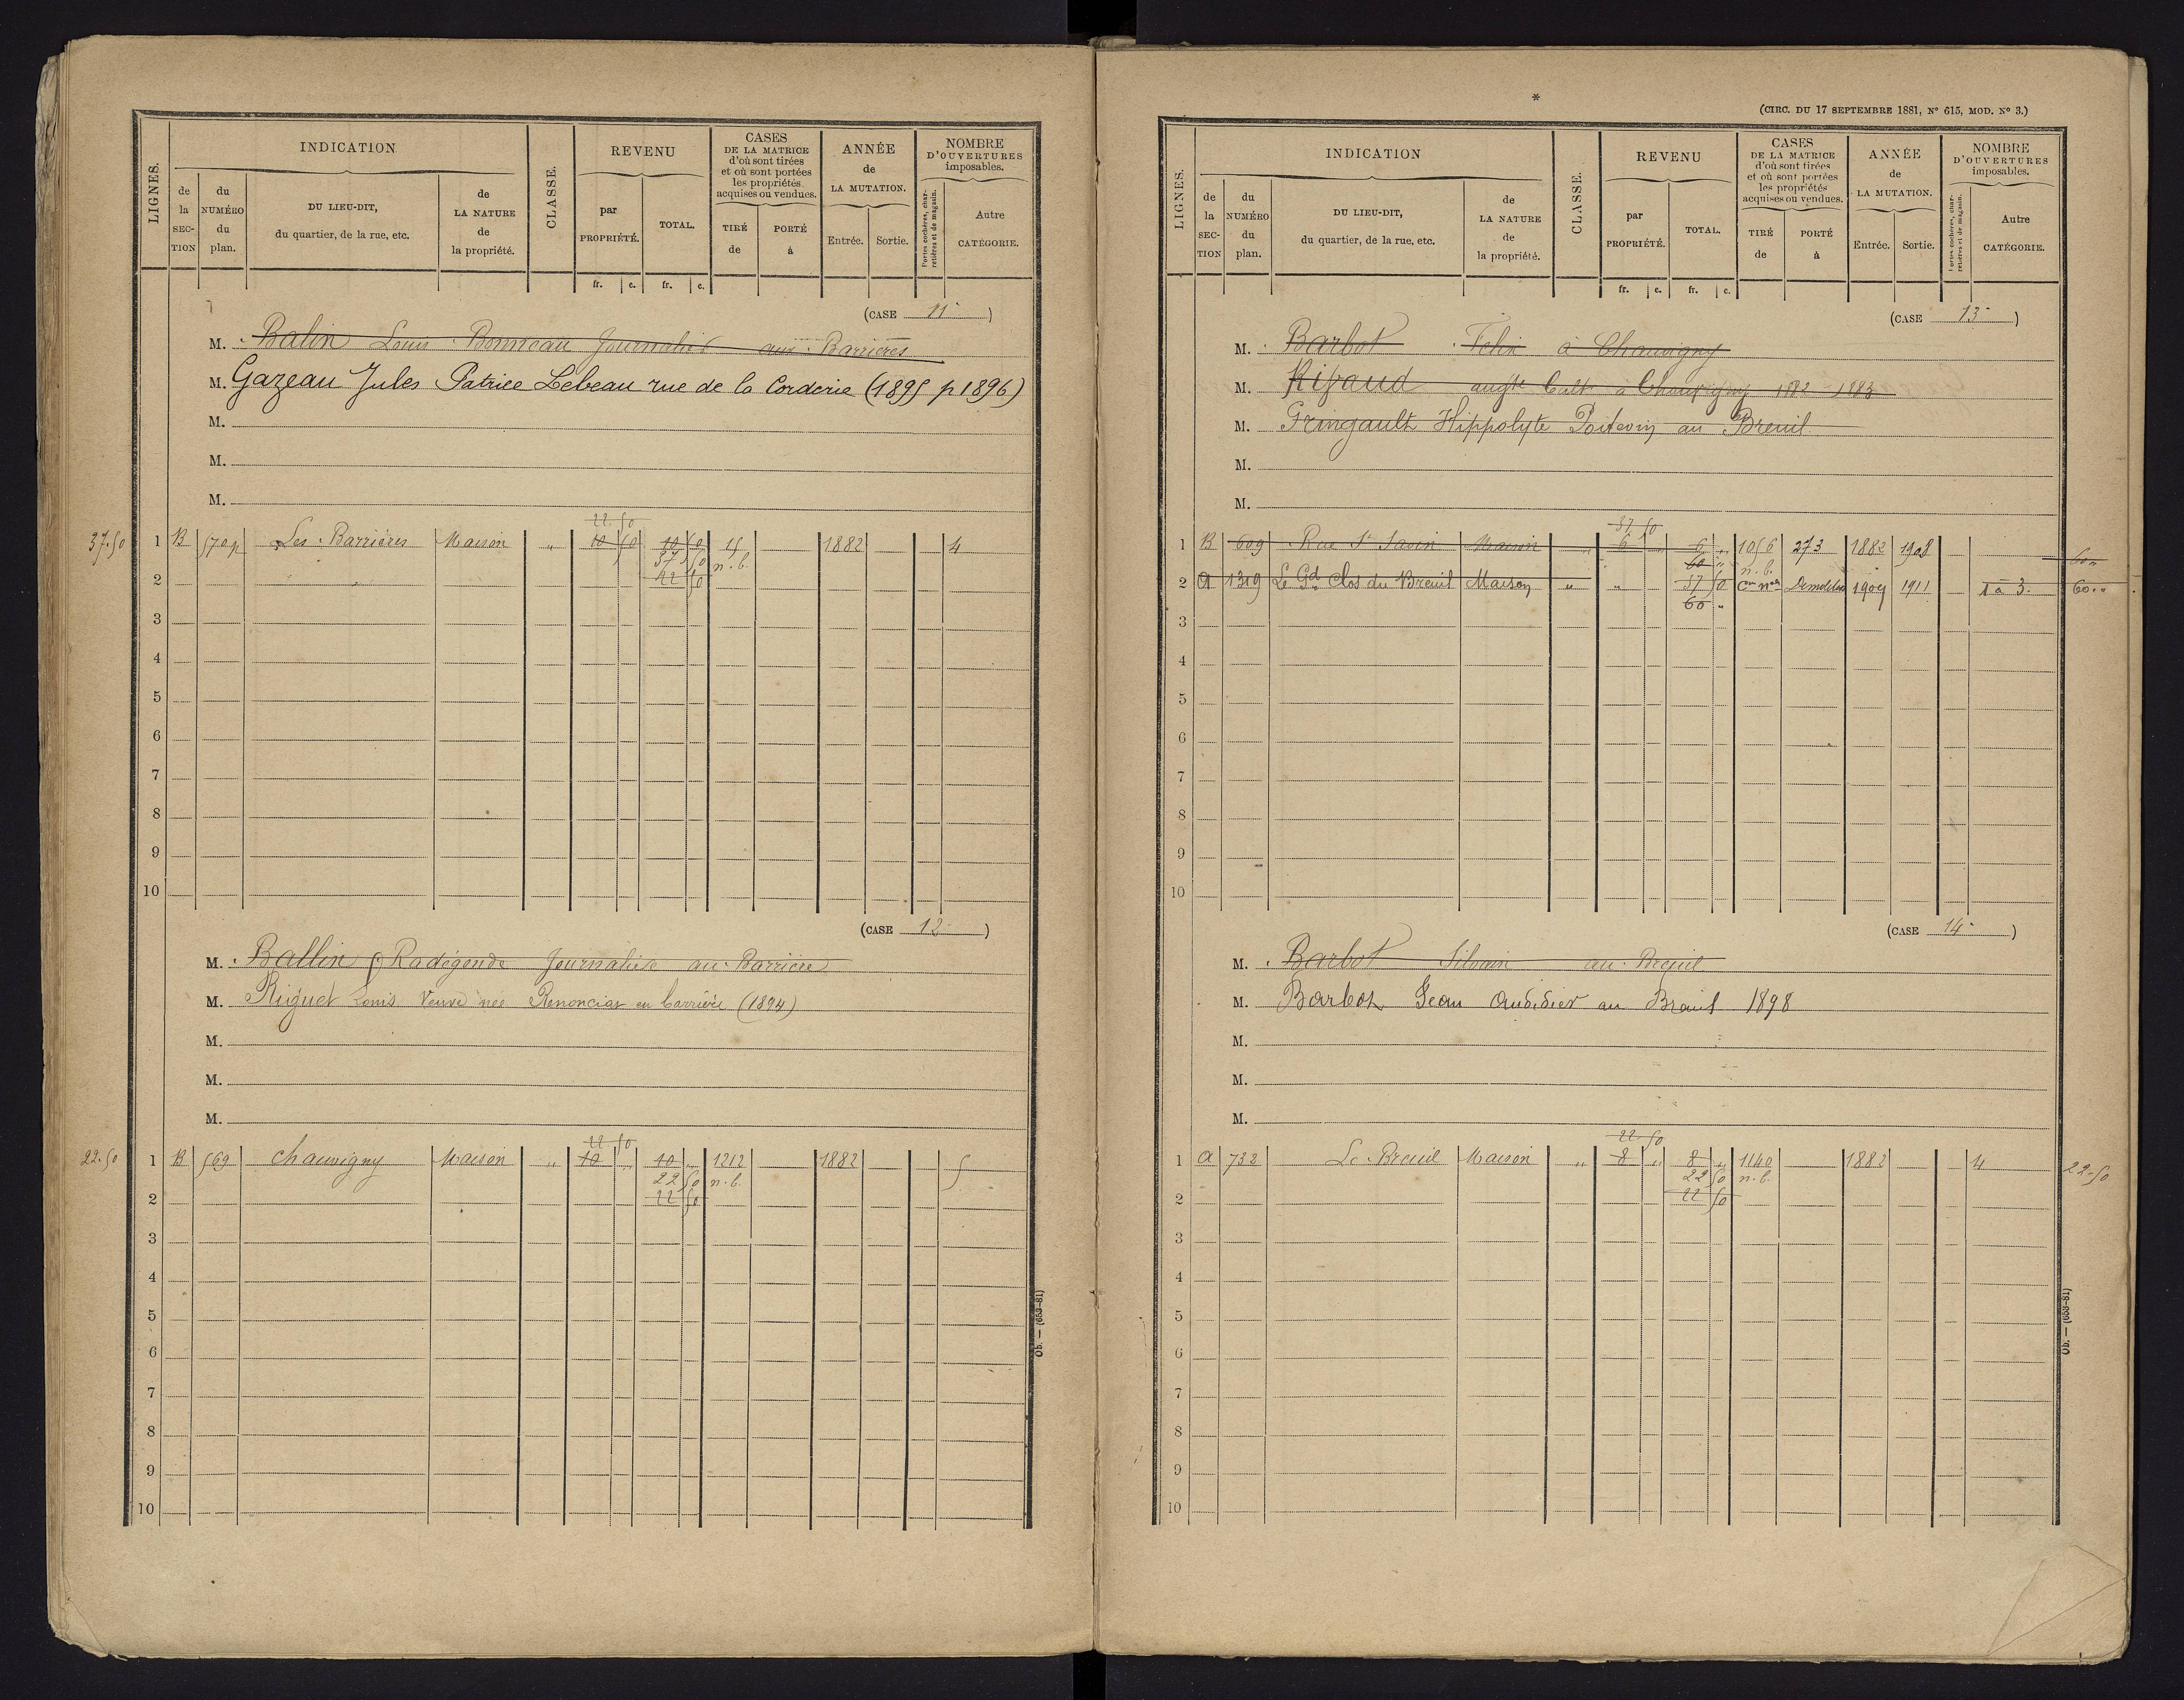 LIGNES.
INDICATION
de la SEC-TION
du NUMÉRO du plan.
DU LIEU-DIT, du quartier, de la rue, etc.
de LA NATURE de la propriété.
CLASSE.
REVENU
par PROPRIÉTÉ.
TOTAL.
CASES DE LA MATRICE d'où sont tirées et où sont portées les propriétés acquises ou vendues.
TIRÉ de
PORTÉ à
ANNÉE de LA MUTATION.
Entrée.
Sortie.
NOMBRE D'OUVERTURES imposables.
Portes cochères, charretières et de magasin.
Autre CATÉGORIE.
fr. c. fr. c.
(CASE 11)
M. Balin Louis Bonneau Journalier aux Barrières
M. Gazeau Jules Patrice Lebeau rue de la Corderie (1895 p 1896)
M.
M.
M.
22 50
37.50 1 B 570p Les Barrières Maison " 10 50 10 50 15 1882 4
37 50 n.b.
2 22 50
3
4
5
6
7
8
9
10
(CASE 12)
M. Ballin Radégonde Journalière au Barrière
M. Riquet Louis Veuve née en Carrière (1894)
M.
M.
M.
22 50
22.50 1 B 569 Chauvigny Maison " 10 " 10 " 1212 1882 5
22 50 n.b.
2 22 50
3
4
5
6
7
8
9
10
Ob. — (653-81)
*
(CIRC. DU 17 SEPTEMBRE 1881, N° 615, MOD. N° 3.)
LIGNES.
INDICATION
de la SEC-TION
du NUMÉRO du plan.
DU LIEU-DIT, du quartier, de la rue, etc.
de LA NATURE de la propriété.
CLASSE.
REVENU
par PROPRIÉTÉ.
TOTAL.
CASES DE LA MATRICE d'où sont tirées et où sont portées les propriétés acquises ou vendues.
TIRÉ de
PORTÉ à
ANNÉE de LA MUTATION.
Entrée.
Sortie.
NOMBRE D'OUVERTURES imposables.
Portes cochères, charretières et de magasin.
Autre CATÉGORIE.
fr. c. fr. c.
(CASE 13)
M. Barbot Félix à Chauvigny
M. Ribaud augte Cult à Chauvigny 1882 1883
M. Gringault Hippolyte Poitevin au Breuil
M.
M.
37 50
1 B 609 Rue St Savin Maison " 6 " 6 " 1056 273 1882 1908
60 " n.b. 60 "
2 A 1319 Le Gd Clos du Breuil Maison " " 37 50 Con nlle 1909 1911 1 à 3. 60 "
60 "
3
4
5
6
7
8
9
10
(CASE 14)
M. Barbot Silvain au Breuil
M. Barbot Jean Audidier au Breuil 1898
M.
M.
M.
22 50
1 A 732 Le Breuil Maison " 8 " 8 " 1140 1882 4 22-50
22 50 n.b.
2 22 50
3
4
5
6
7
8
9
10
Ob. — (653-81)